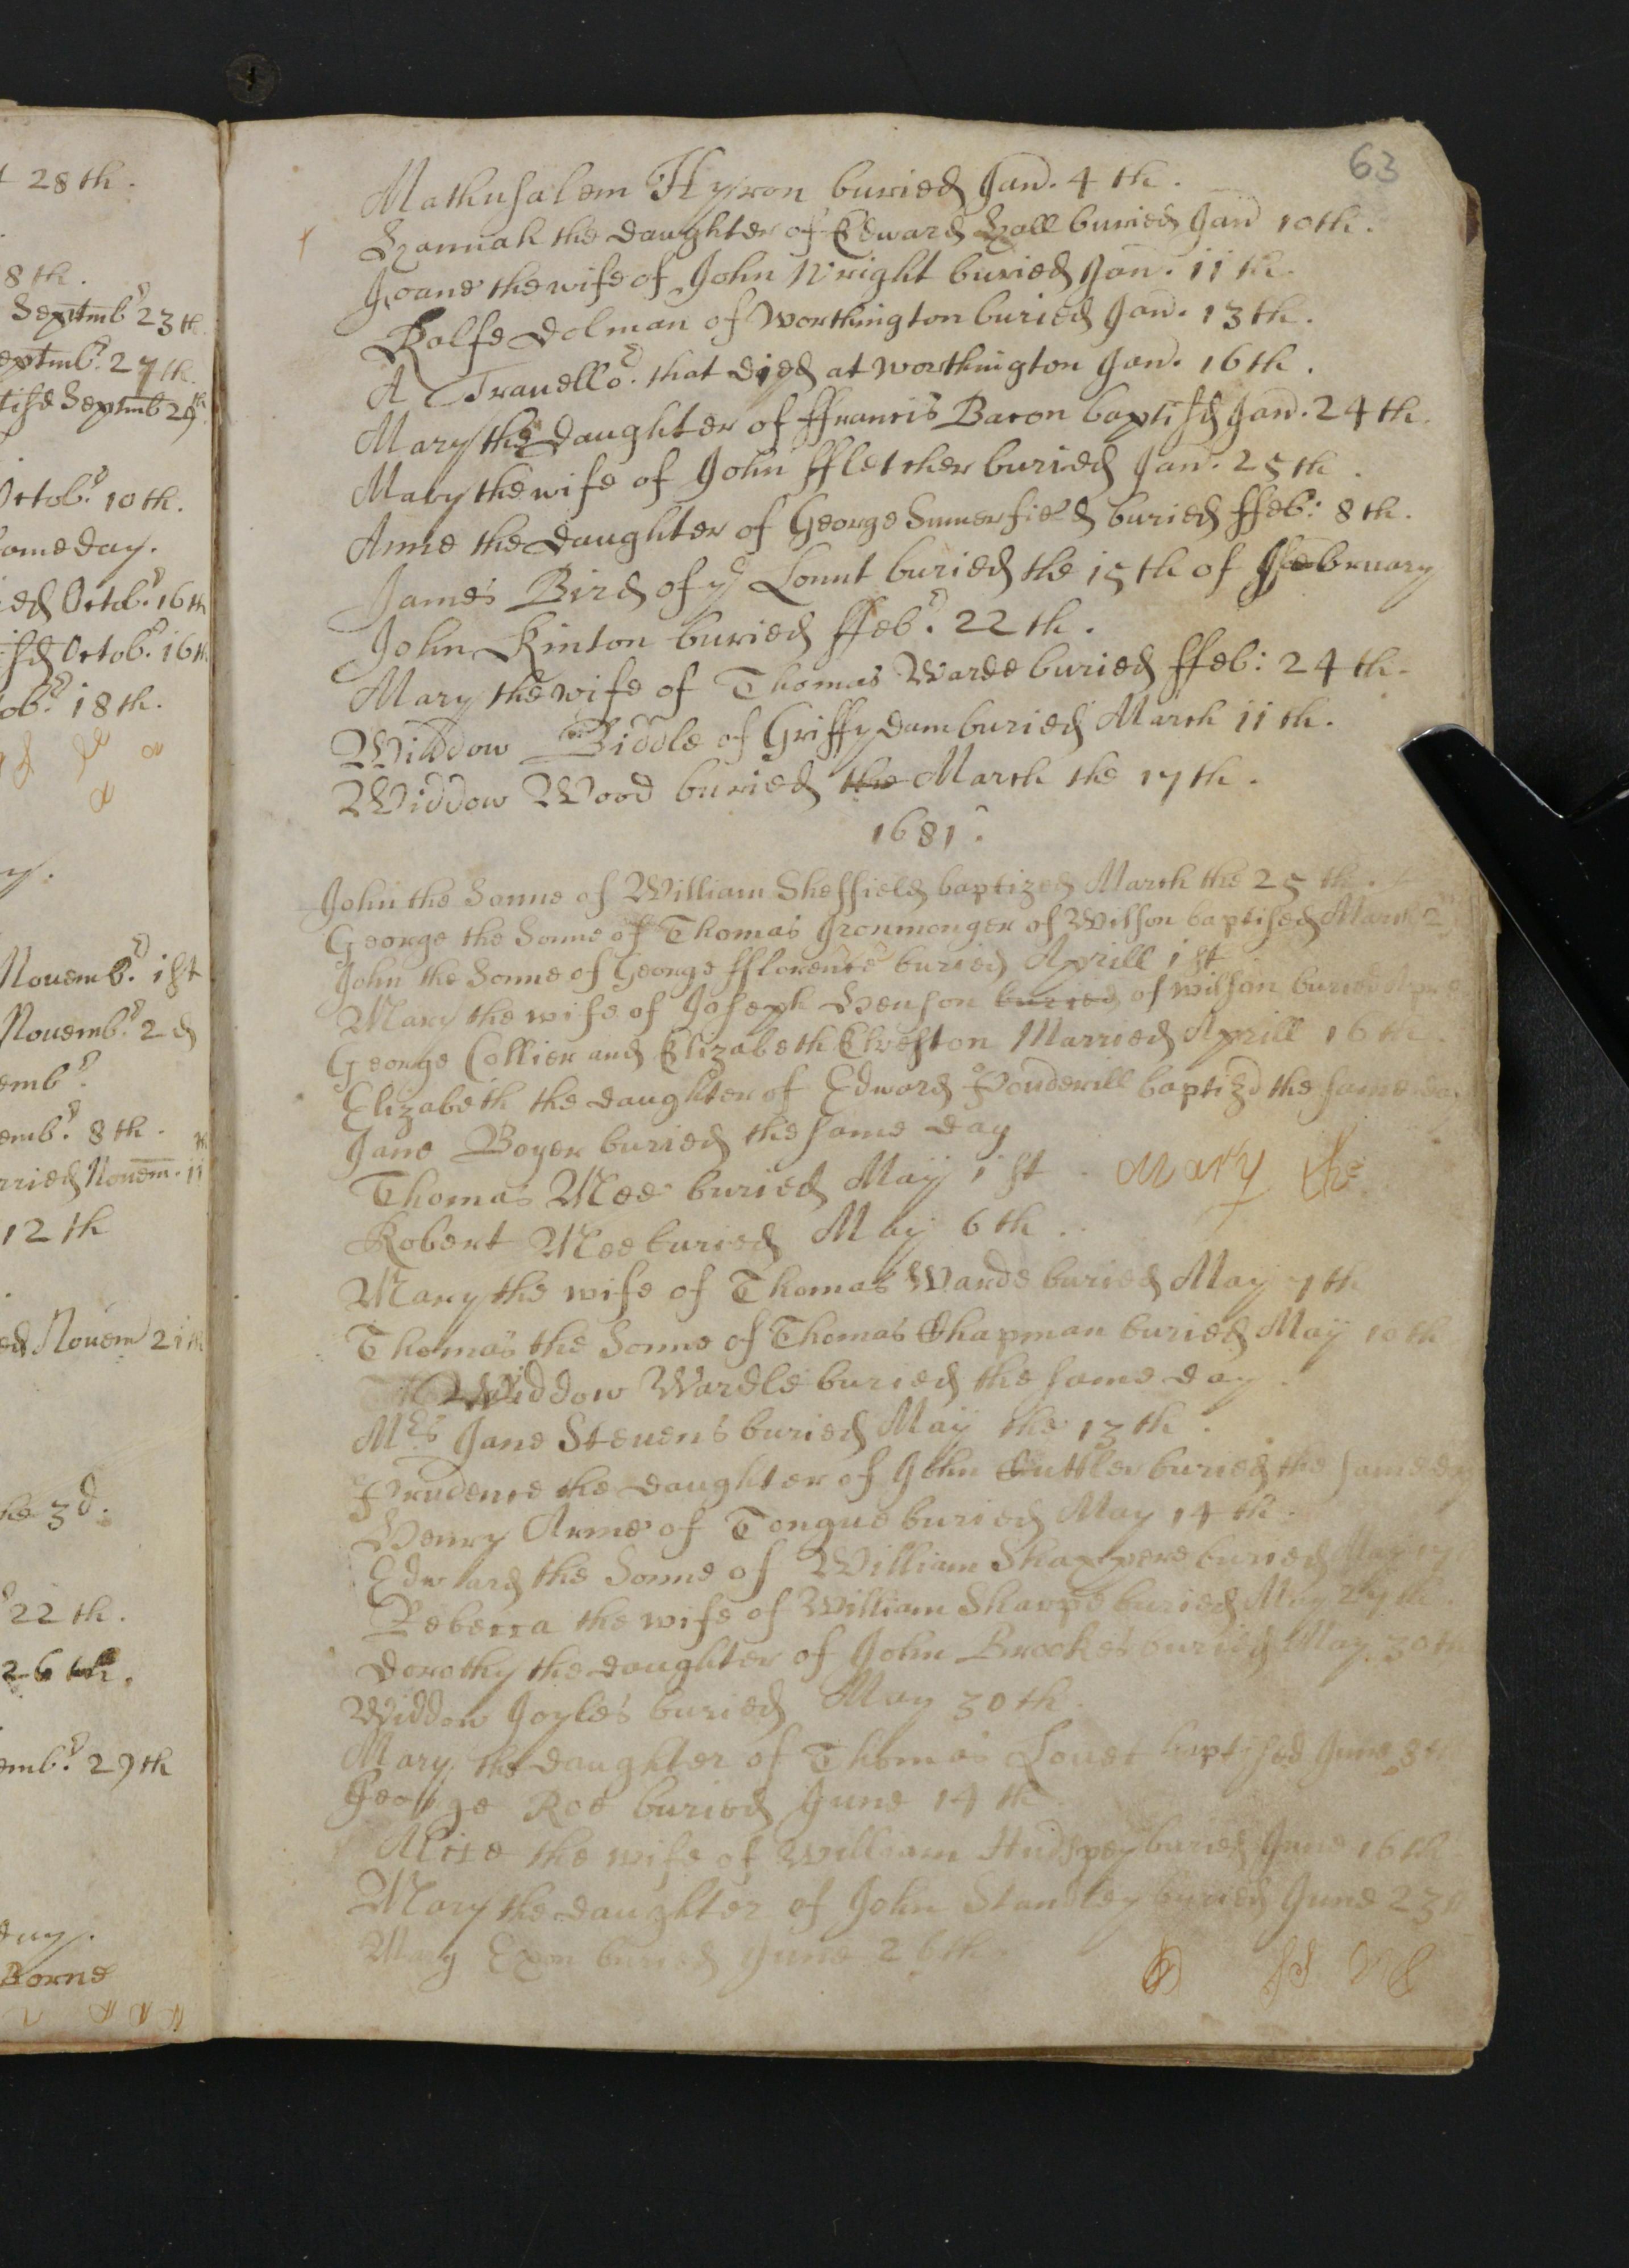 t 28th.
8th.
Septmbr 23th.
eptmbr. 27th.
tisd Septmb 29th
Octobr. 10th.
same day.
ied Octobr. 16th
isd Octobr. 16th
obr. 18th.
y.
Nouembr. 1st
Nouembr. 2d
embr.
embr. 8th.
rried Nouem. 11
12th
ed Nouem 21th
he 3d.
22th.
26th.
embr. 29th
day.
Borne
63
Mathusalem Hyron buried Jan. 4th.
Hannah the daughter of Edward Hall buried Jan 10th.
Joane the wife of John Wright buried Jan. 11th.
Rolfe Dolman of Worthington buried Jan. 13th.
A Trauellor. that died at Worthington Jan. 16th.
Mary the daughter of ffrancis Bacon baptisd Jan. 24th.
Mary the wife of John ffletcher buried Jan. 25th.
Anne the daughter of George Sumerfield buried ffeb: 8th.
James Bird of ye Lount buried the 15th of ffebruary
John Kinton buried ffebr. 22th.
Mary the wife of Thomas Warde buried ffeb: 24th.
Widdow Biddle of Griffydam buried March 11th.
Widdow Wood buried the March the 17th.
1681.
John the Sonne of William Sheffield baptized March the 25th.
George the Sonne of Thomas Ironmonger of Wilson baptised March 2
John the Sonne of George fflorence buried Aprill 1st
Mary the wife of Joseph Henson buried of Wilson buried
George Collier and Elizabeth Married Aprill 16th.
Elizabeth the daughter of Edward baptizd the same day
Jane Boyer buried the same day
Thomas Mee buried May 1st. Mary the
Robert Mee buried May 6th.
Mary the wife of Thomas Warde buried May 7th
Thomas the Sonne of Thomas Chapman buried May 10th
Widdow Wardle buried the same day.
Mrs Jane Steuens buried May the 13th.
Prudence the daughter of John Cuttler buried the same day
Henry Arme of Tongue buried May 14th.
Edward the Sonne of William buried May 17
Rebecca the wife of William Sharpe buried May 27th.
Dorothy the daughter of John Brookes buried May 30th
Widdow Joyles buried May 30th.
Mary the daughter of Thomas Louet baptised June 8th
George Roe buried June 14th
Alice the wife of William buried June 16th
Mary the daughter of John Standley buried June 23
Mary buried June 26th.